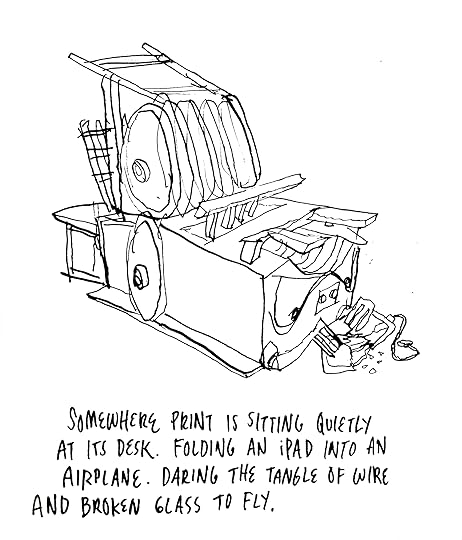 SOMEWHERE PRINT IS SITTING QUIETLY
AT ITS DESK. FOLDING AN iPAD INTO AN
AIRPLANE. DARING THE TANGLE OF WIRE
AND BROKEN GLASS TO FLY.